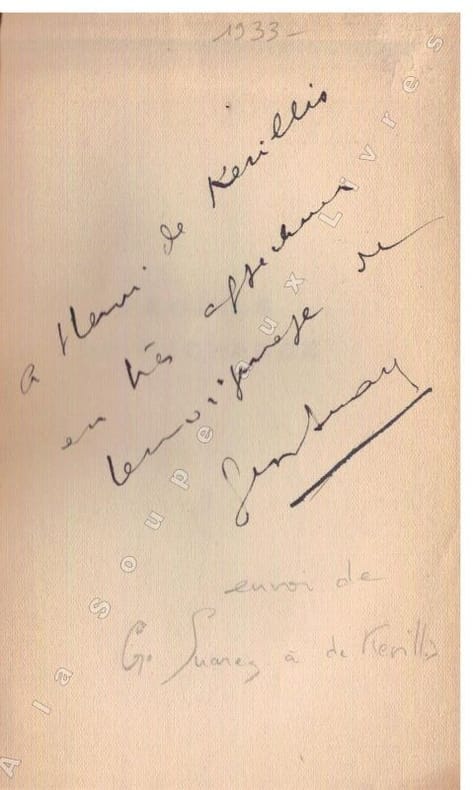 1933-
a Henri de Kerillis
en très affectueux
temoignage de
Geo Suarez
envoi de
Go Suarez à de Kerillis
A la soupe aux Livres